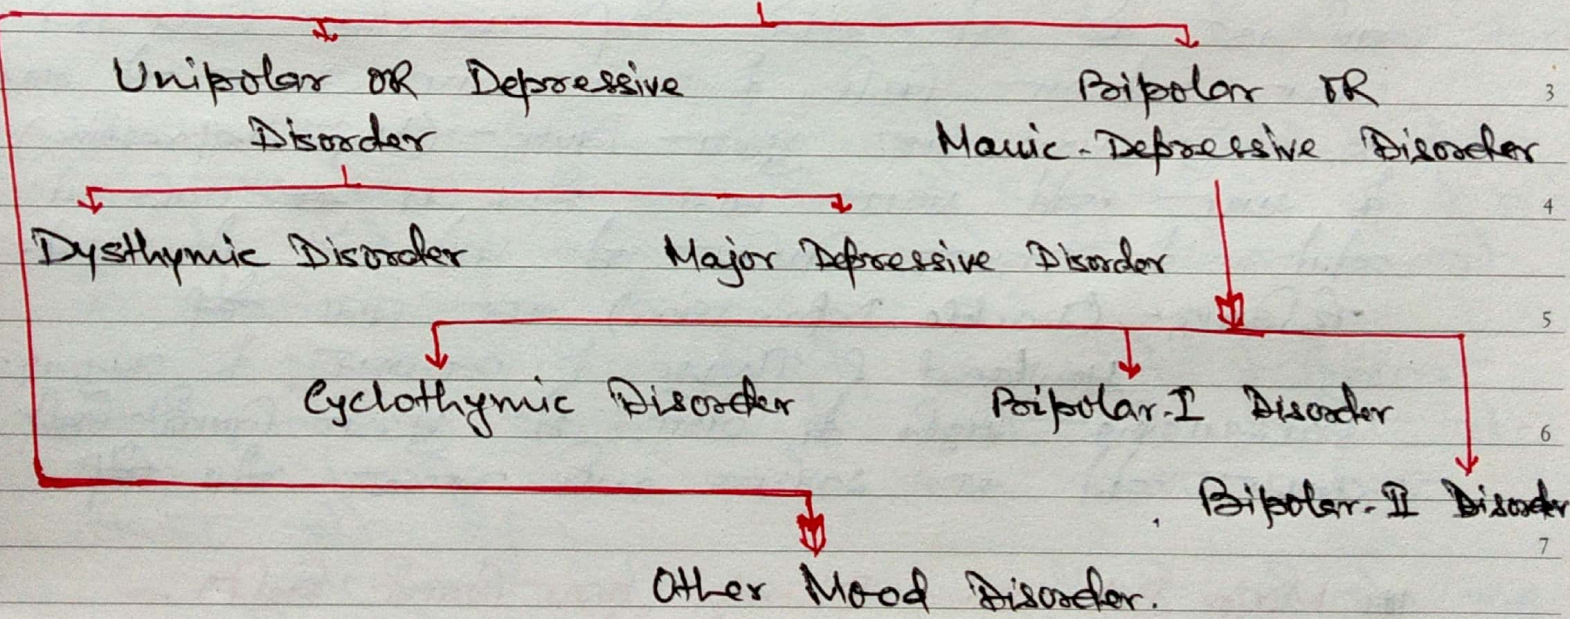 Unipolar OR Depressive
Disorder
Bipolar OR
Manic-Depressive Disorder
3
4
Dysthymic Disorder
Major Depressive Disorder
5
Cyclothymic Disorder
Bipolar-I Disorder
6
Bipolar-II Disorder
7
Other Mood Disorder.